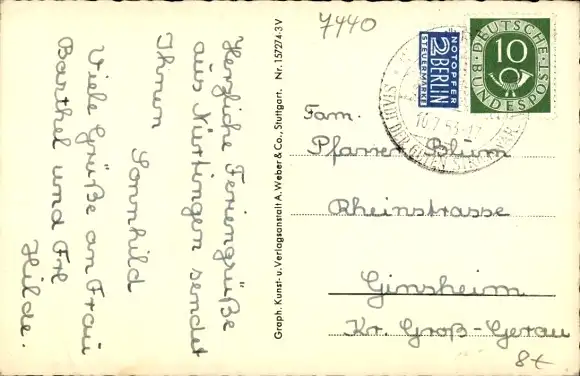 7440
Herzliche Feriengrüße
aus Nürtingen sendet
Ihnen Sonnhild
Viele Grüße an Frau
Barthel und Frl
Hilde.
Graph. Kunst- u. Verlagsanstalt A. Weber & Co., Stuttgart. Nr. 157274.3V
NOTOPFER
2 BERLIN
STEUERMARKE
DEUTSCHE
10
BUNDESPOST
Fam.
Pfarrer Blum
Rheinstrasse
Ginsheim
Kr. Groß-Gerau